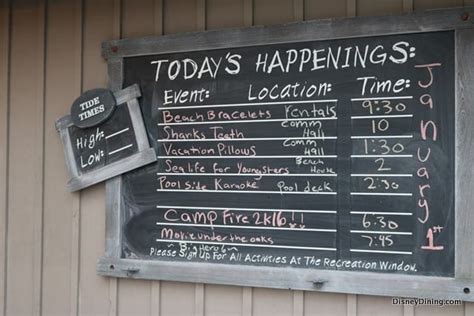 TODAY'S HAPPENINGS:
Event: Location: Time:
Beach Bracelets rentals 9:30
Sharks Teeth Comm Hall 10
Vacation Pillows Comm Hall 1:30
Sea life for Youngsters Beach House 2
Pool side Karaoke Pool deck 2:30
CAMP Fire 2k16!! 6:30
Movie under the oaks 7:45
~ Big Hero 6 ~
PLEASE SIGN UP FOR ALL ACTIVITIES AT THE RECREATION WINDOW.
January 1st
TIDE
TIMES
High:
Low:
DisneyDining.com